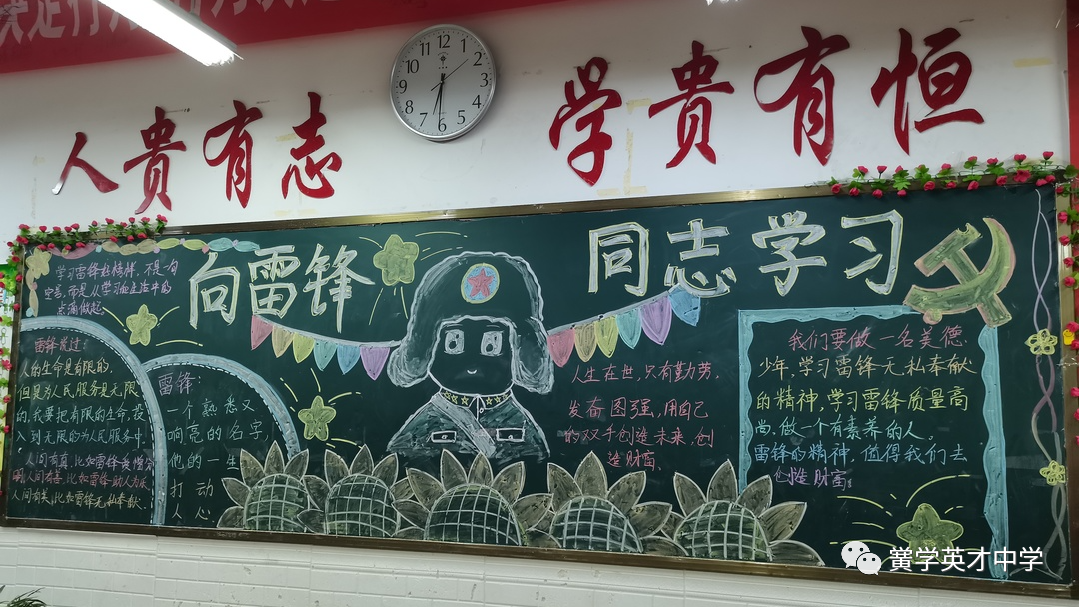 人贵有志 学贵有恒
12
11
1
10
2
9
3
8
4
7
5
6
向雷锋同志学习
学习雷锋
精神，不是一句
空善，而是从学习和生活中的
点滴做起
雷锋说过：
人的生命是有限的，
但是为人民服务是无限
的，我要把有限的生命，投
入到无限的为人民服务中，
人间有真，比如雷锋
人间有善，比如雷锋助人为乐
人间有美，比如雷锋无私奉献．
雷锋：
一个熟悉又
响亮的名字，
他的一生
打动
人心
人生在世，只有勤劳，
发奋图强，用自己
的双手创造未来，创
造财富，
我们要做一名美德
少年，学习雷锋无私奉献
的精神，学习雷锋质量高
尚，做一个有素养的人。
雷锋的精神，值得我们去
创造财富。
黉学英才中学